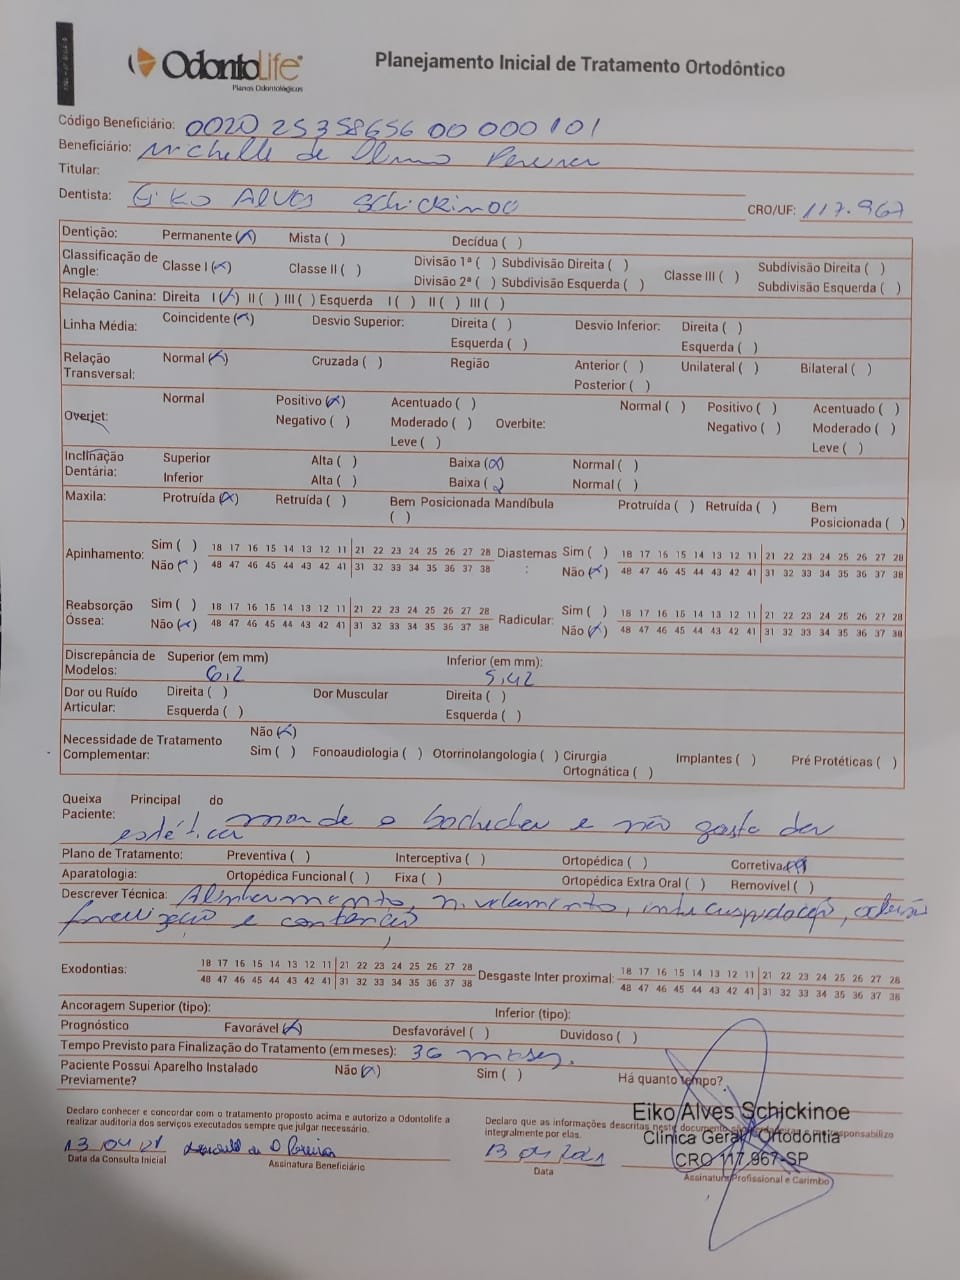 OdontoLife
Planos Odontológicos
Planejamento Inicial de Tratamento Ortodôntico
Código Beneficiário: 0020 25358656 00 000101
Beneficiário: Michelle de Pereira
Titular:
Dentista: Eiko Alves Schickinoe CRO/UF: 117.967
Dentição: Permanente (X) Mista ( ) Decídua ( )
Classificação de Angle: Classe I (X) Classe II ( ) Divisão 1ª ( ) Subdivisão Direita ( ) Classe III ( ) Subdivisão Direita ( )
Divisão 2ª ( ) Subdivisão Esquerda ( ) Subdivisão Esquerda ( )
Relação Canina: Direita I (X) II ( ) III ( ) Esquerda I ( ) II ( ) III ( )
Linha Média: Coincidente (X) Desvio Superior: Direita ( ) Desvio Inferior: Direita ( )
Esquerda ( ) Esquerda ( )
Relação Transversal: Normal (X) Cruzada ( ) Região Anterior ( ) Unilateral ( ) Bilateral ( )
Posterior ( )
Overjet: Normal Positivo (X) Acentuado ( ) Overbite: Normal ( ) Positivo ( ) Acentuado ( )
Negativo ( ) Moderado ( ) Negativo ( ) Moderado ( )
Leve ( ) Leve ( )
Inclinação Dentária: Superior Alta ( ) Baixa (X) Normal ( )
Inferior Alta ( ) Baixa ( ) Normal ( )
Maxila: Protruída (X) Retruída ( ) Bem Posicionada ( ) Mandíbula Protruída ( ) Retruída ( ) Bem Posicionada ( )
Apinhamento: Sim ( ) 18 17 16 15 14 13 12 11 21 22 23 24 25 26 27 28 Diastemas : Sim ( ) 18 17 16 15 14 13 12 11 21 22 23 24 25 26 27 28
Não (X) 48 47 46 45 44 43 42 41 31 32 33 34 35 36 37 38 Não (X) 48 47 46 45 44 43 42 41 31 32 33 34 35 36 37 38
Reabsorção Óssea: Sim ( ) 18 17 16 15 14 13 12 11 21 22 23 24 25 26 27 28 Radicular: Sim ( ) 18 17 16 15 14 13 12 11 21 22 23 24 25 26 27 28
Não (X) 48 47 46 45 44 43 42 41 31 32 33 34 35 36 37 38 Não (X) 48 47 46 45 44 43 42 41 31 32 33 34 35 36 37 38
Discrepância de Modelos: Superior (em mm) 6,2 Inferior (em mm): 5,42
Dor ou Ruído Articular: Direita ( ) Dor Muscular Direita ( )
Esquerda ( ) Esquerda ( )
Necessidade de Tratamento Complementar: Não (X)
Sim ( ) Fonoaudiologia ( ) Otorrinolangologia ( ) Cirurgia Ortognática ( ) Implantes ( ) Pré Protéticas ( )
Queixa Principal do Paciente: morde a bochecha e não gosta da
estética
Plano de Tratamento: Preventiva ( ) Interceptiva ( ) Ortopédica ( ) Corretiva (X)
Aparatologia: Ortopédica Funcional ( ) Fixa ( ) Ortopédica Extra Oral ( ) Removível ( )
Descrever Técnica: Alinhamento, nivelamento, intercuspidação,
finalização e contenção
Exodontias: 18 17 16 15 14 13 12 11 21 22 23 24 25 26 27 28 Desgaste Inter proximal: 18 17 16 15 14 13 12 11 21 22 23 24 25 26 27 28
48 47 46 45 44 43 42 41 31 32 33 34 35 36 37 38 48 47 46 45 44 43 42 41 31 32 33 34 35 36 37 38
Ancoragem Superior (tipo): Inferior (tipo):
Prognóstico Favorável (X) Desfavorável ( ) Duvidoso ( )
Tempo Previsto para Finalização do Tratamento (em meses): 36 meses.
Paciente Possui Aparelho Instalado Previamente? Não (X) Sim ( ) Há quanto tempo?
Declaro conhecer e concordar com o tratamento proposto acima e autorizo a Odontolife a
realizar auditoria dos serviços executados sempre que julgar necessário.
13 04 21
Data da Consulta Inicial Assinatura Beneficiário
Declaro que as informações descritas neste documento são responsabilizo
integralmente por elas.
13 04 2021
Data
Eiko Alves Schickinoe
Clínica Geral / Ortodontia
CRO 117.967-SP
Assinatura Profissional e Carimbo